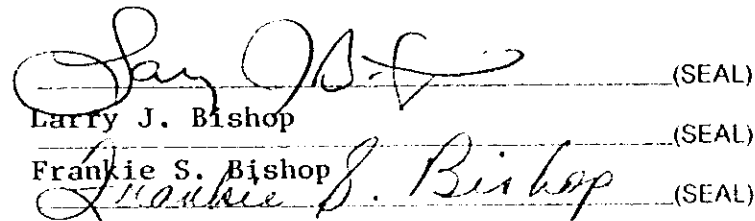 Larry J. Bishop (SEAL)
Larry J. Bishop
(SEAL)
Frankie S. Bishop
Frankie S. Bishop (SEAL)